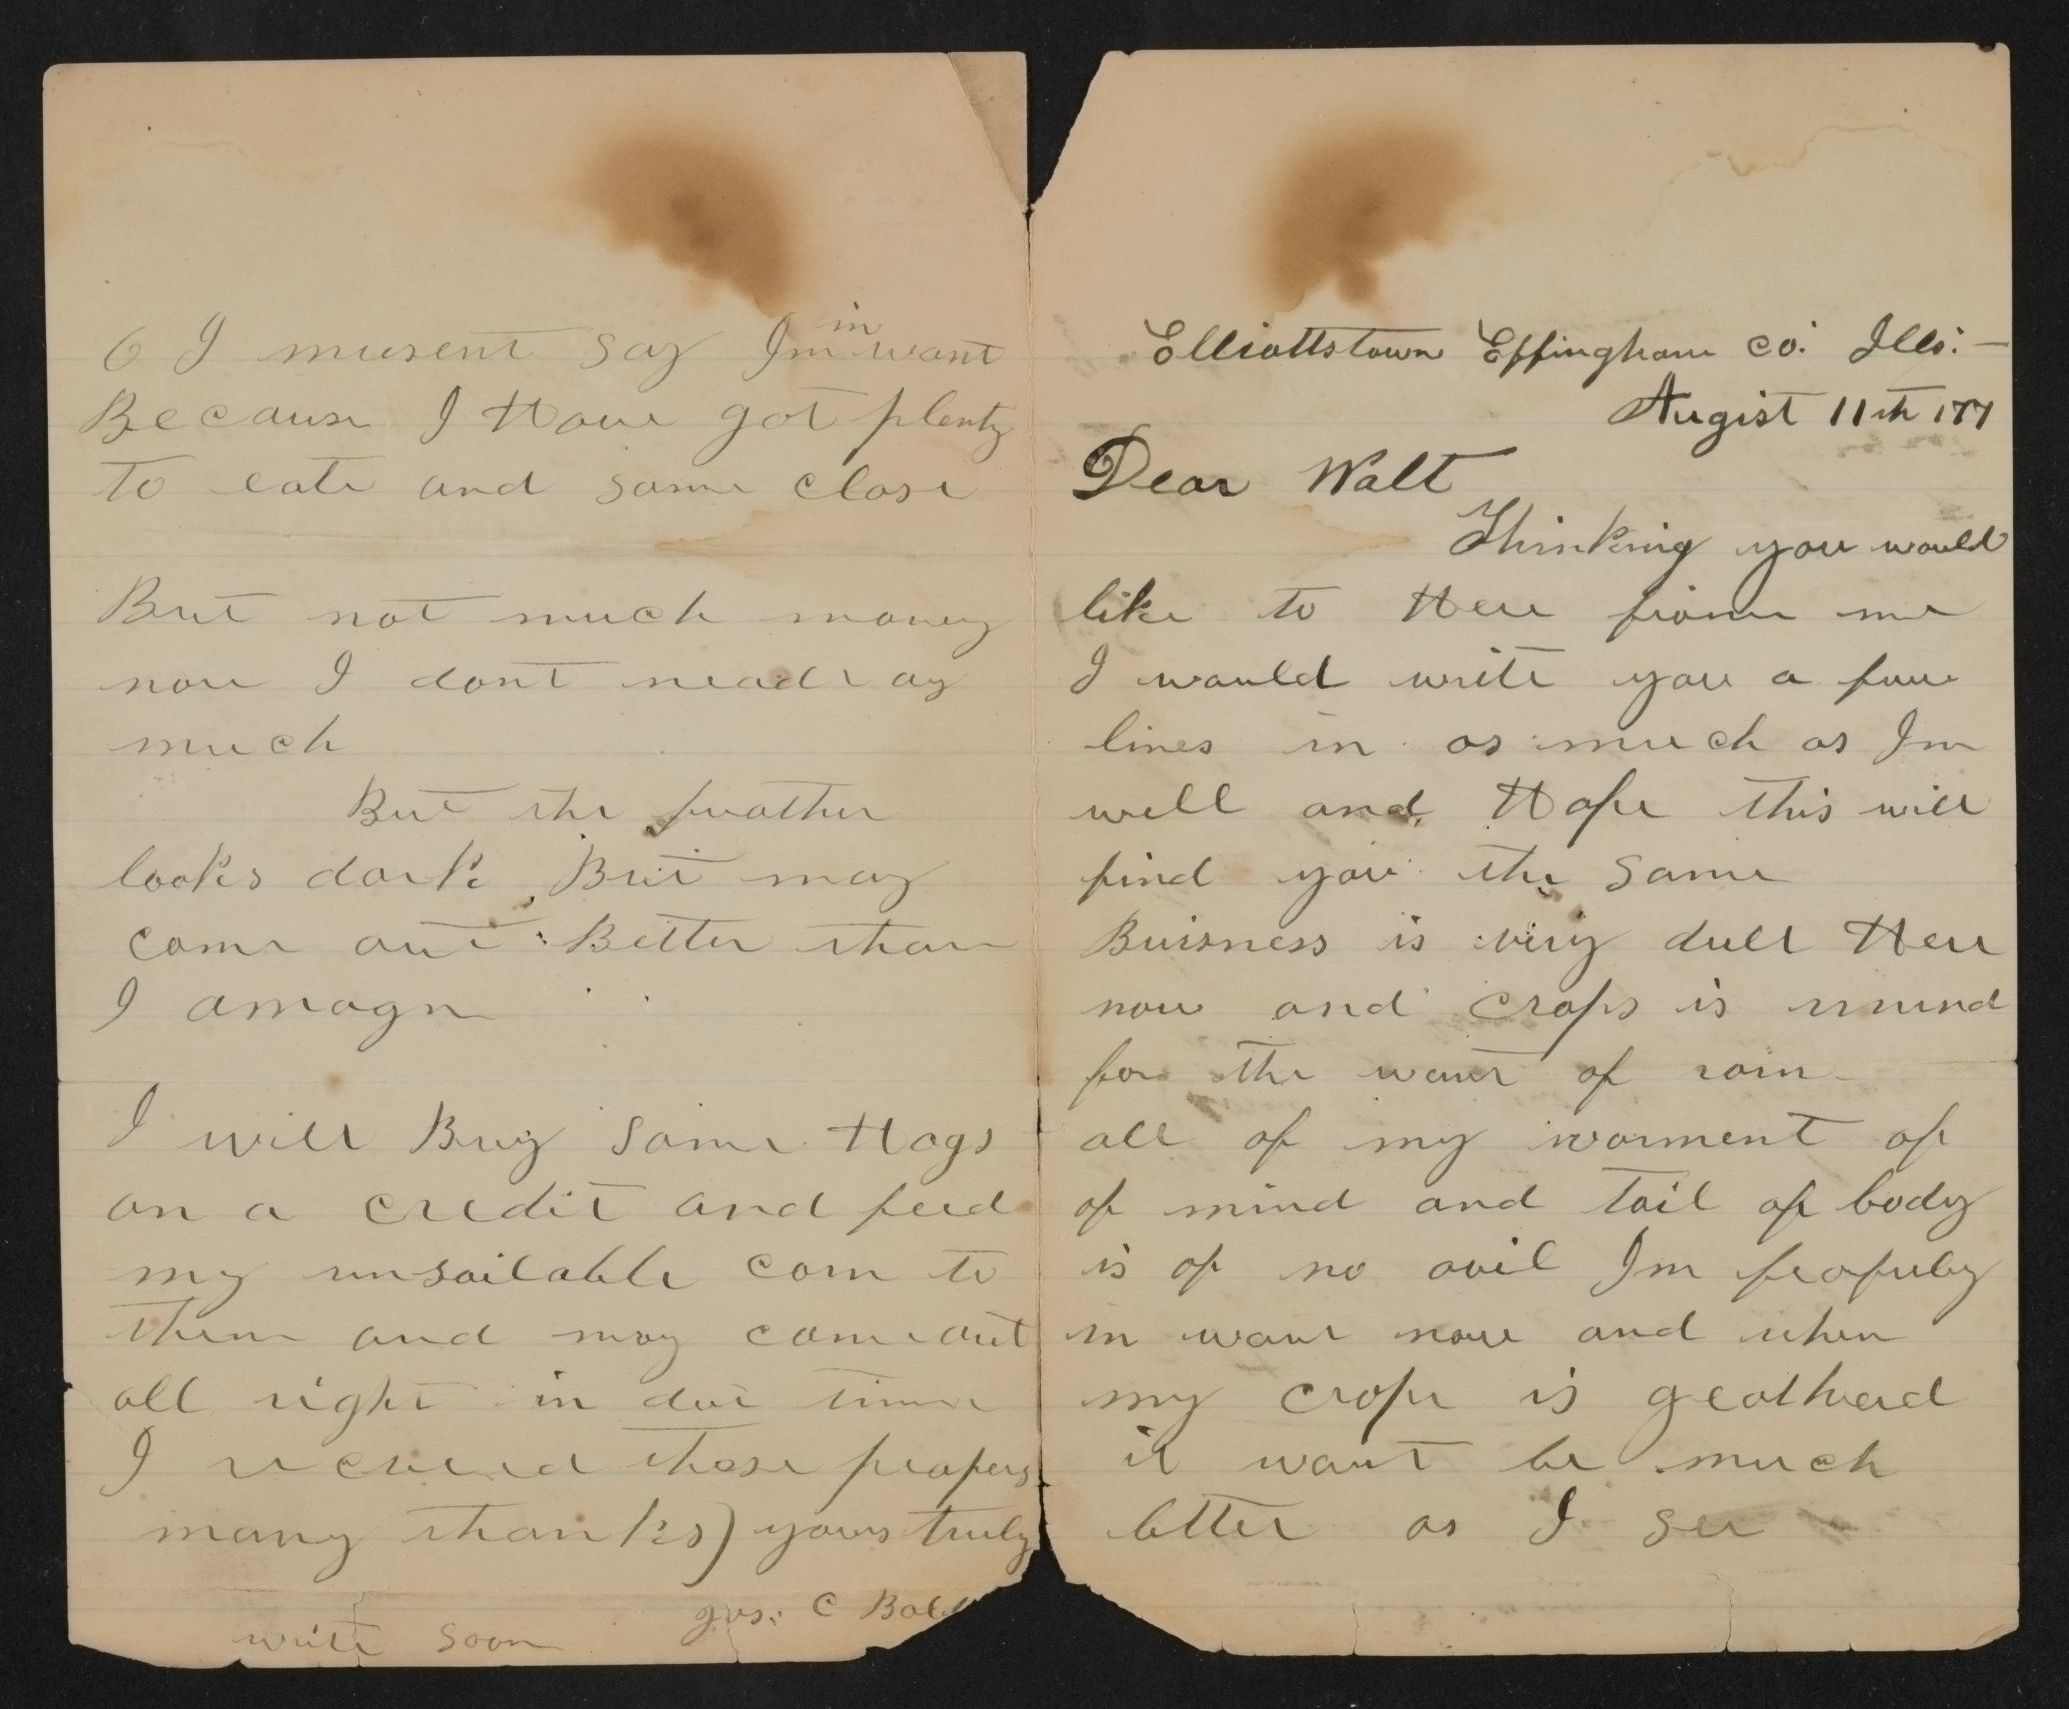 Elliottstown Effingham co. Ills. —
Augist 11th 177
Dear Walt
Thinking you would
like to Here from me
I would write you a fuw
lines in as much as Im
well and Hope this will
find you the same
Buisness is very dull Here
now and crops is
for the want of rain
all of my worment of
of mind and toil of body
is of no avil Im
in want now and when
my crope is geathered
it want be much
better as I see
O I musent say Im in want
Because I Have got plenty
to eate and some close
But not much money
nore I dont neade ay
much
But the
looks dark But may
come out Better than
I amagn
I will Buy some Hogs
on a credit and feed
my unsailable corn to
them and may come out
all right in due time
I recieved those peapers
many thanks) yours truly
C
write soon